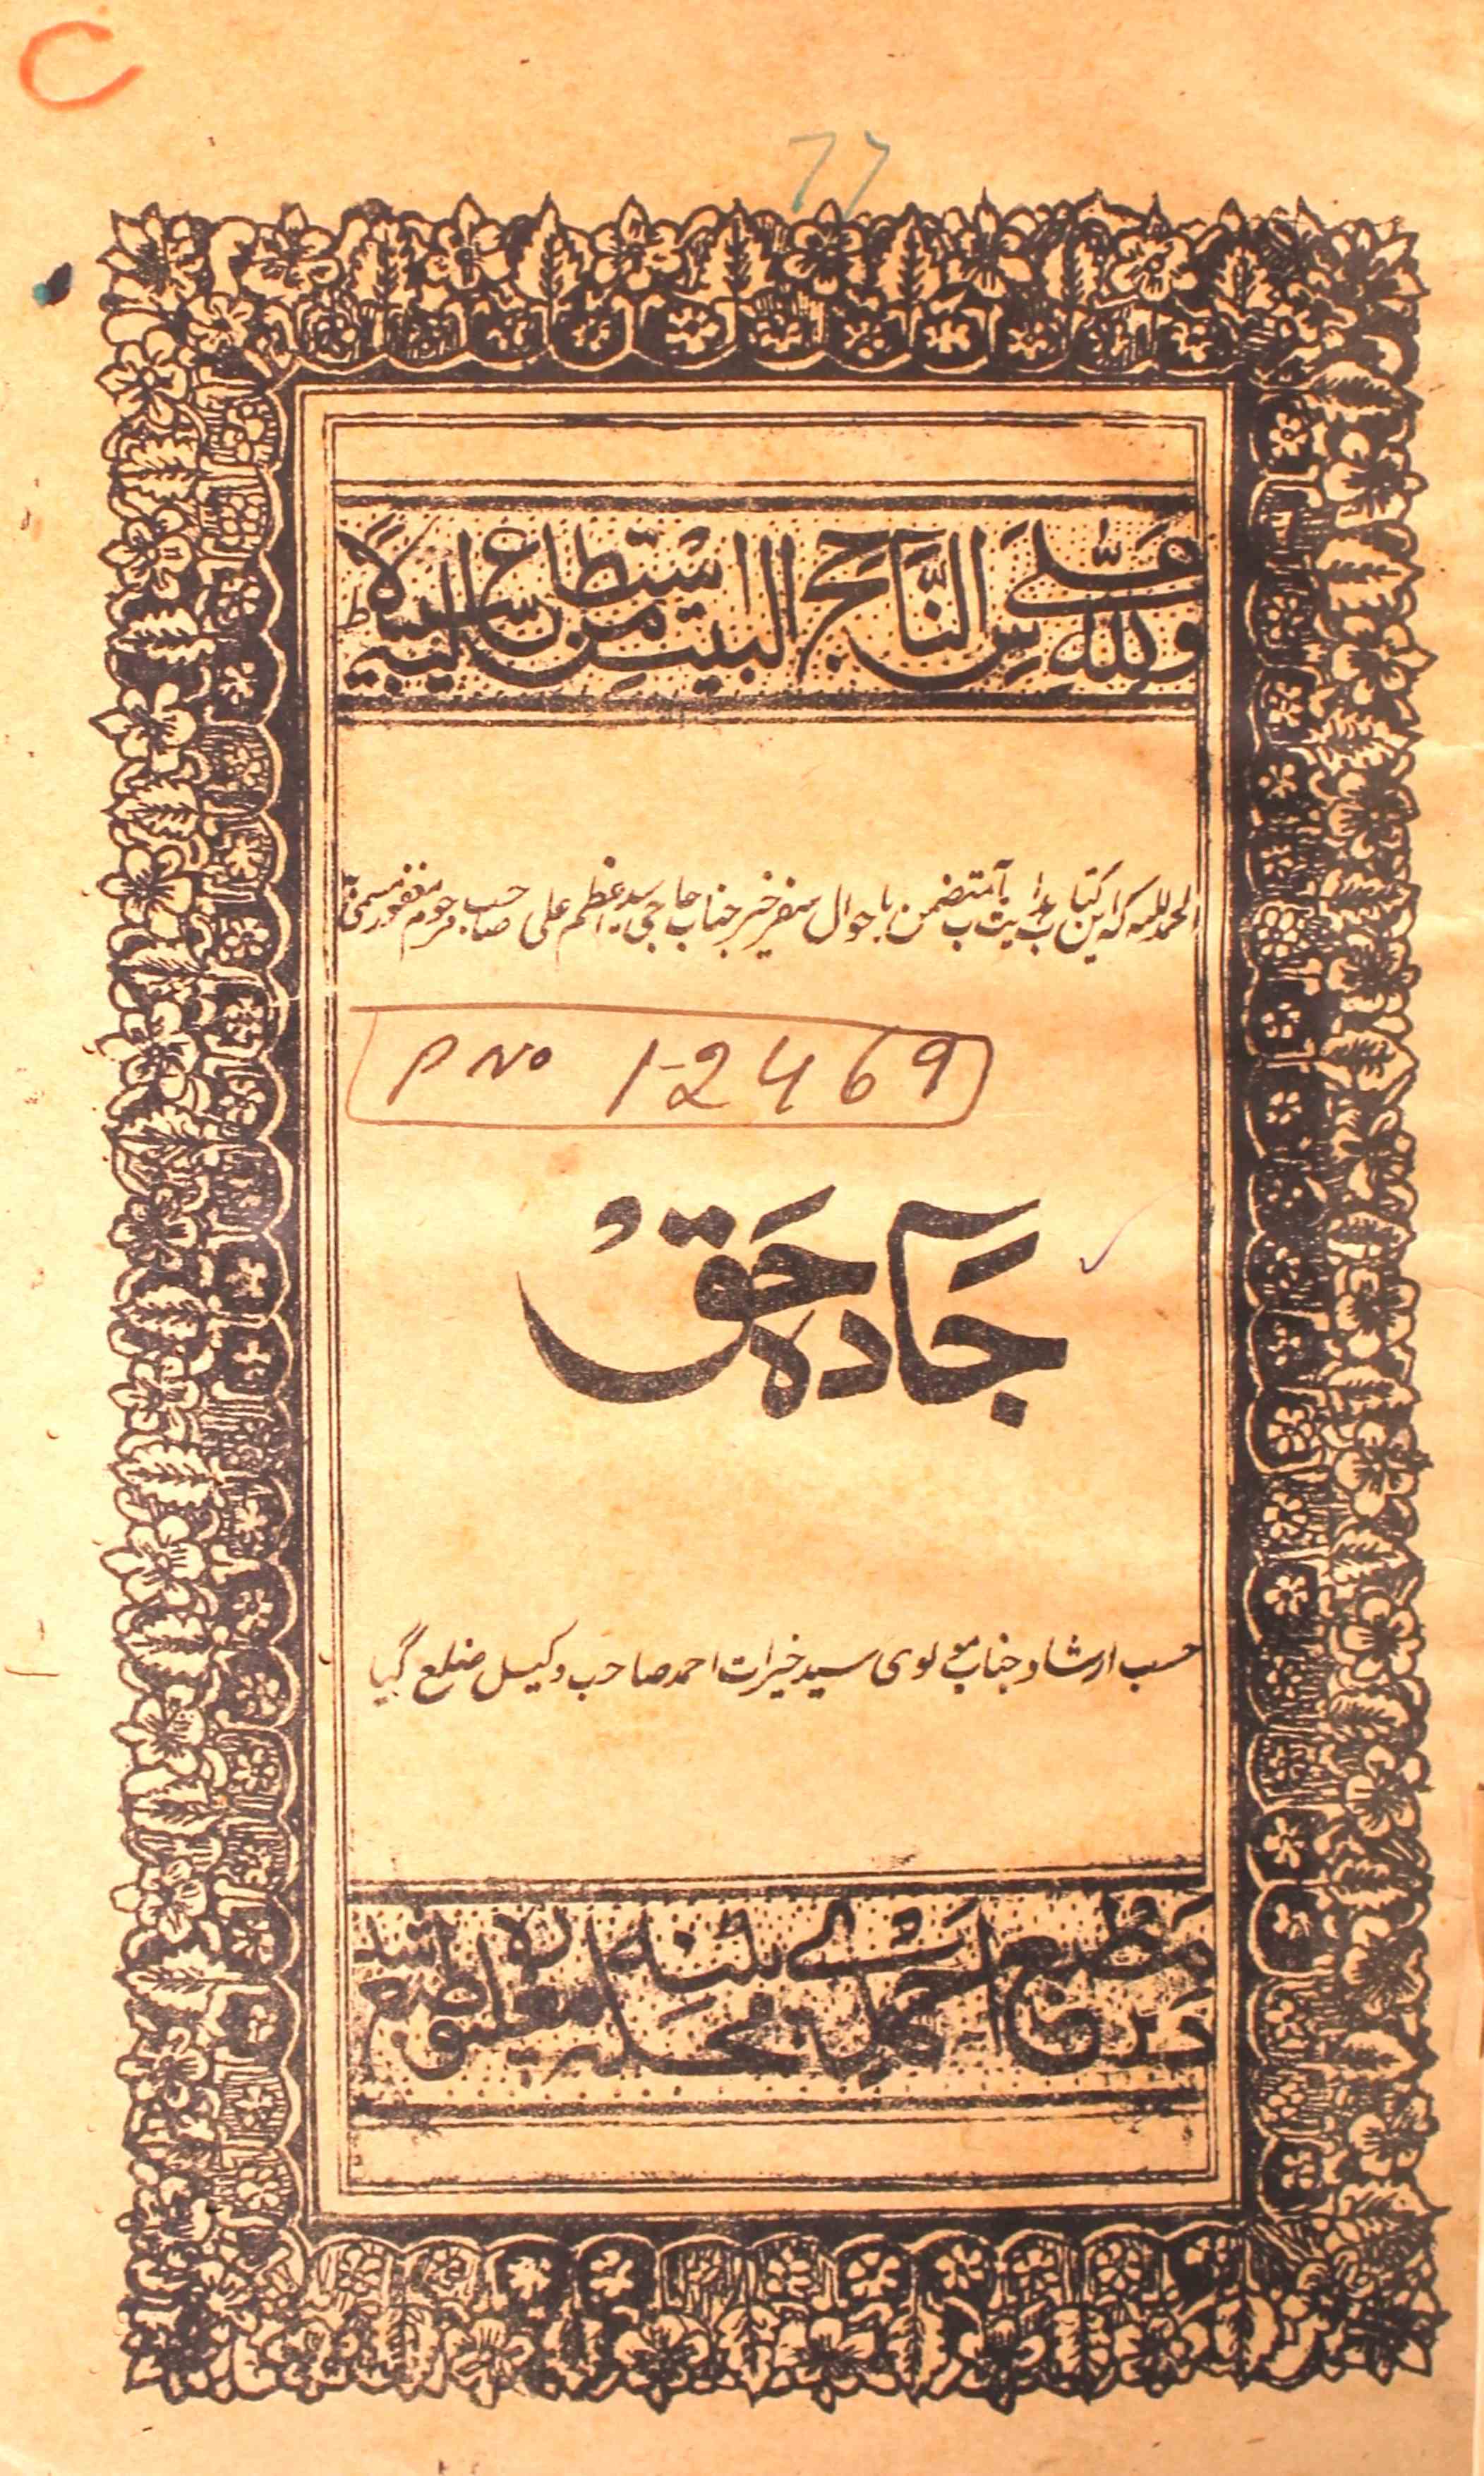 77
وَلِلّٰهِ عَلَى النَّاسِ حِجُّ الْبَيْتِ مَنِ اسْتَطَاعَ اِلَيْهِ سَبِيْلًا ط
الحمد للہ کہ این کتاب ہدایت مآب متضمن باحوال سفر خیر جناب حاجی سید اعظم علی صاحب مرحوم مغفور مسمیٰ بہ
P No 1-2469
جَادہ حَق
حسب ارشاد جناب مولوی سید خیرات احمد صاحب وکیل ضلع گیا
مطبع احمدی پٹنہ محلہ مغلپورہ طبع شد